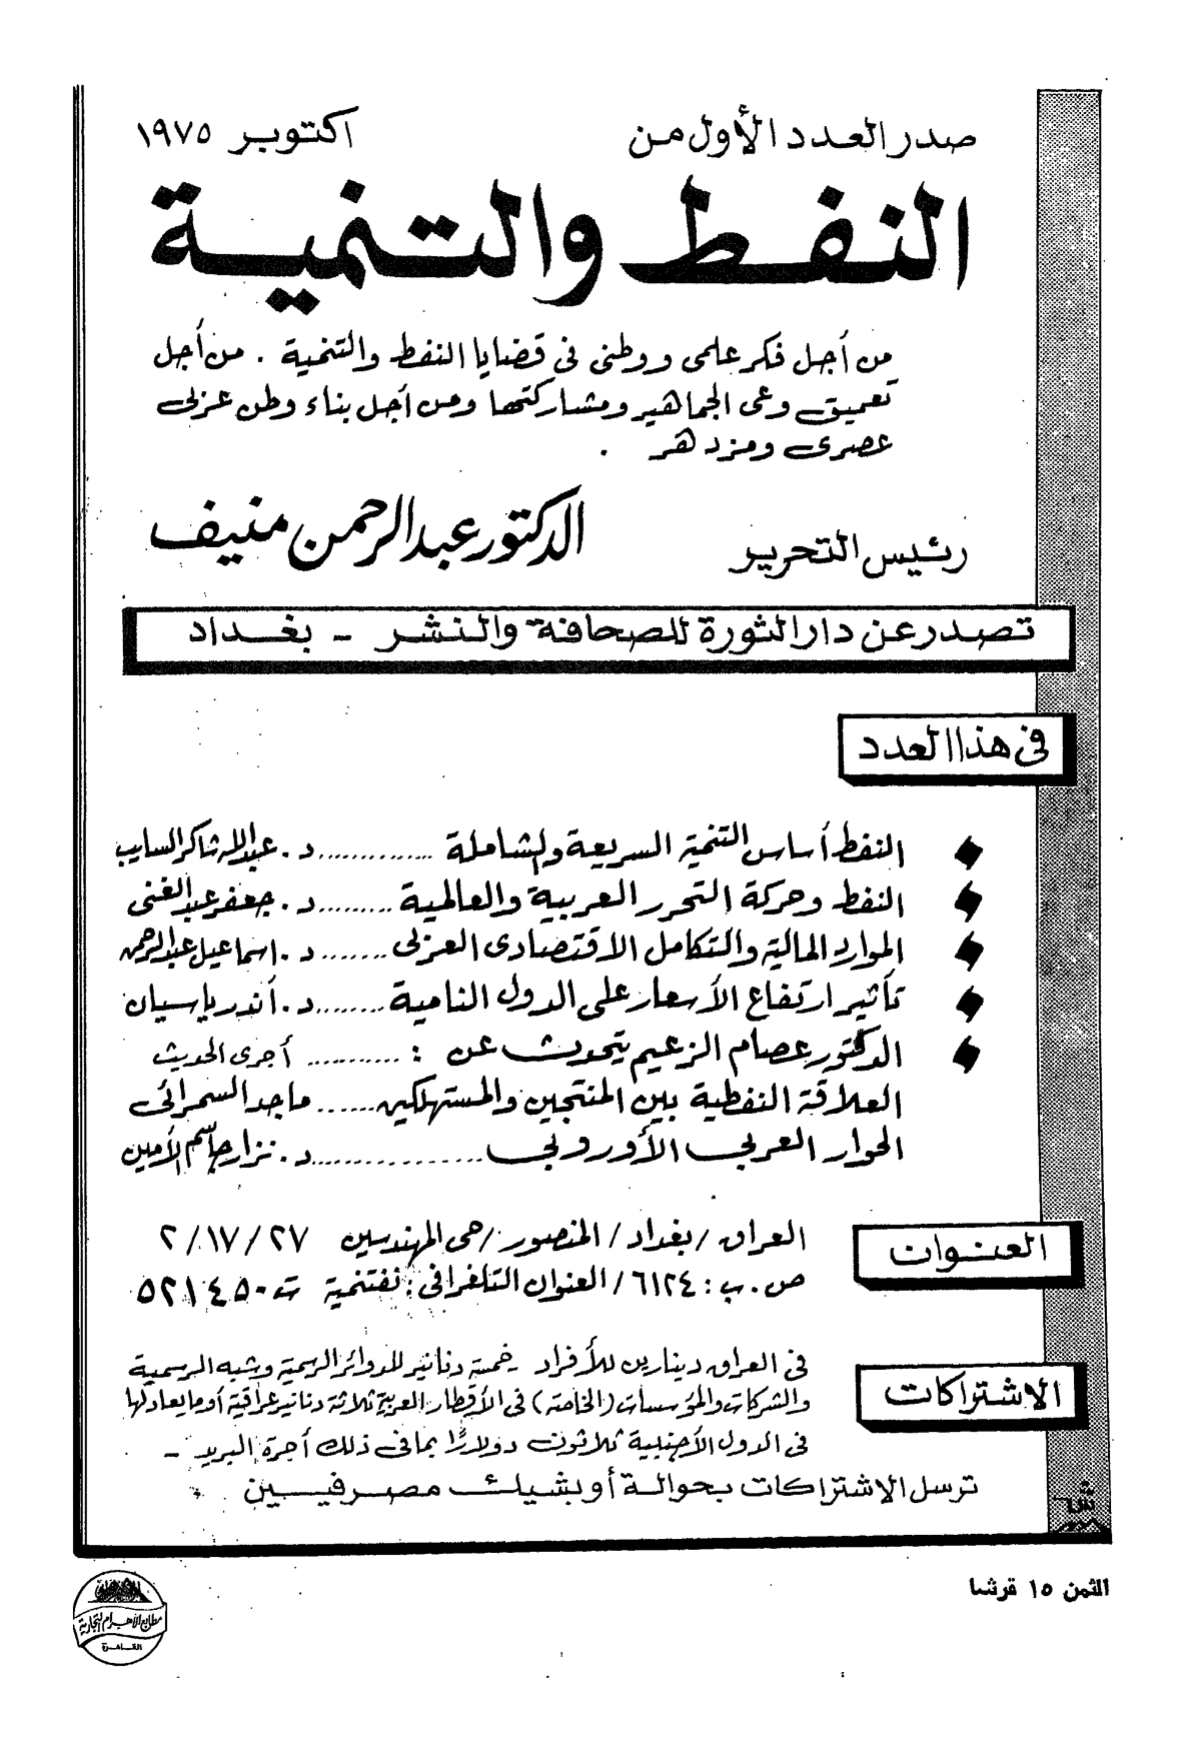 صدر العدد الأول من
اكتوبر ١٩٧٥
النفط والتنمية
من أجل فكر علمى ووطنى فى قضايا النفط والتنمية . من أجل
تعميق وعى الجماهير ومشاركتها ومن أجل بناء وطن عربى
عصرى ومزدهر .
رئيس التحرير الدكتور عبد الرحمن منيف
تصدر عن دار الثورة للصحافة والنشر - بغداد
فى هذا العدد
النفط أساس التنمية السريعة والشاملة .............. د. عبدالله شاكر السايب
النفط وحركة التحرر العربية والعالمية ......... د. جعفر عبد الغنى
الموارد المالية والتكامل الاقتصادى العربى ....... د. اسماعيل عبد الرحمن
تأثير ارتفاع الأسعار على الدول النامية ........ د. أندرياسيان
الدكتور عصام الزعيم يتحدث عن : ........... أجرى الحديث
العلاقة النفطية بين المنتجين والمستهلكين ...... ماجد السمرائى
الحوار العربى الأوروبى ................ د. نزار جاسم الأمين
العنوان
العراق / بغداد / المنصور / حى المهندسين ٢/١٧/٢٧
ص . ب : ٦١٢٤ / العنوان التلغرافى : نفتنمية ت ٥٢١٤٥٠
الاشتراكات
فى العراق دينارين للأفراد خمسة دنانير للدوائر الرسمية وشبه الرسمية
والشركات والمؤسسات (الخاصة) فى الأقطار العربية ثلاثة دنانير عراقية أو ما يعادلها
فى الدول الأجنبية ثلاثون دولارًا بما فى ذلك أجرة البريد -
ترسل الاشتراكات بحوالة أو بشيك مصرفيين
الثمن ١٥ قرشا
مطابع الأهرام التجارية
القاهرة